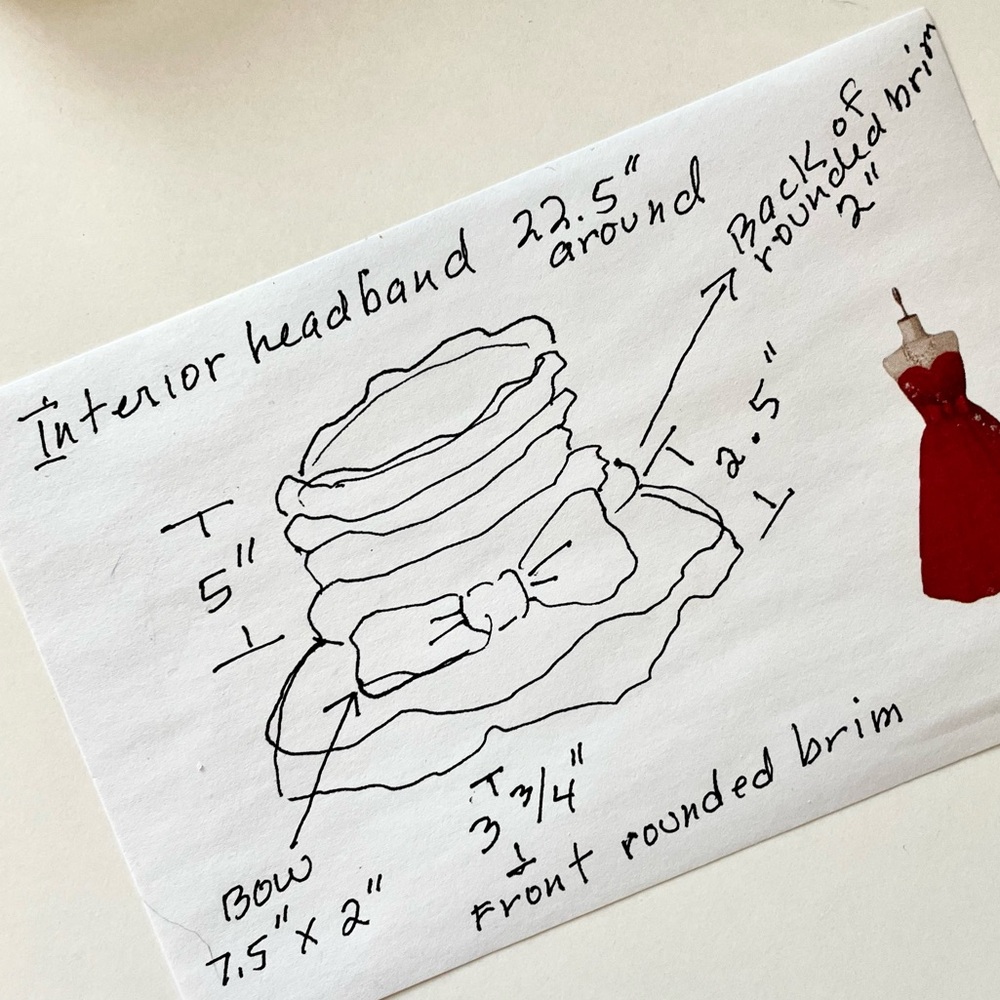 Interior headband 22.5"
around
Back of
rounded brim
2"
2.5"
5"
3 3/4"
Front rounded brim
BOW
7.5" X 2"